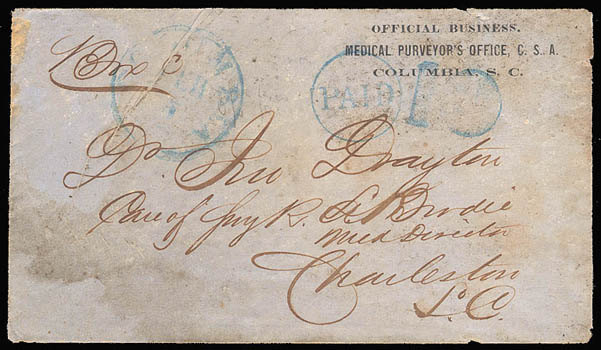 OFFICIAL BUSINESS.
MEDICAL PURVEYOR'S OFFICE, C. S. A.
COLUMBIA, S. C.
Box C
PAID
Dr. Jno Drayton
Care of Surg R. Brodie
Med Director
Charleston
So Ca